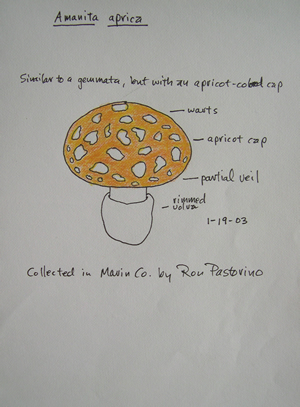 Amanita aprica
Similar to a gemmata, but with an apricot-colored cap
warts
apricot cap
partial veil
rimmed
volva
1-19-03
Collected in Marin Co. by Ron Pastorino